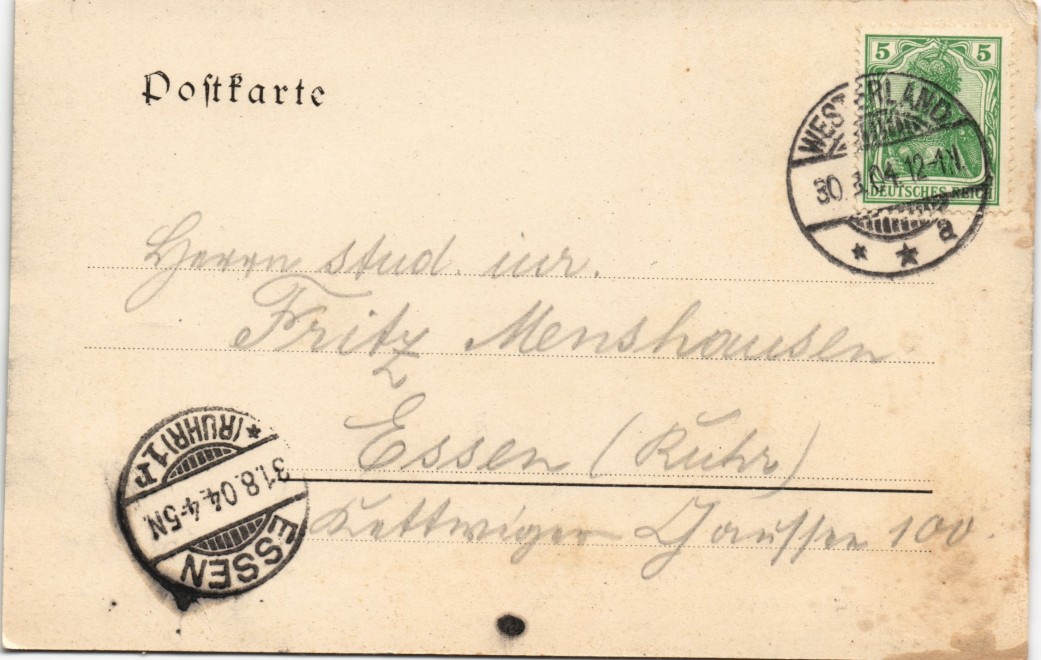 Postkarte
5 5
DEUTSCHES REICH
WESTERLAND
30. 8. 04. 12-1N.
a
Herrn stud. iur.
Fritz Menshausen
Essen (Ruhr)
Kettwiger Chaussee 100.
ESSEN
31.8.04. 4-5N.
(RUHR) 1 r